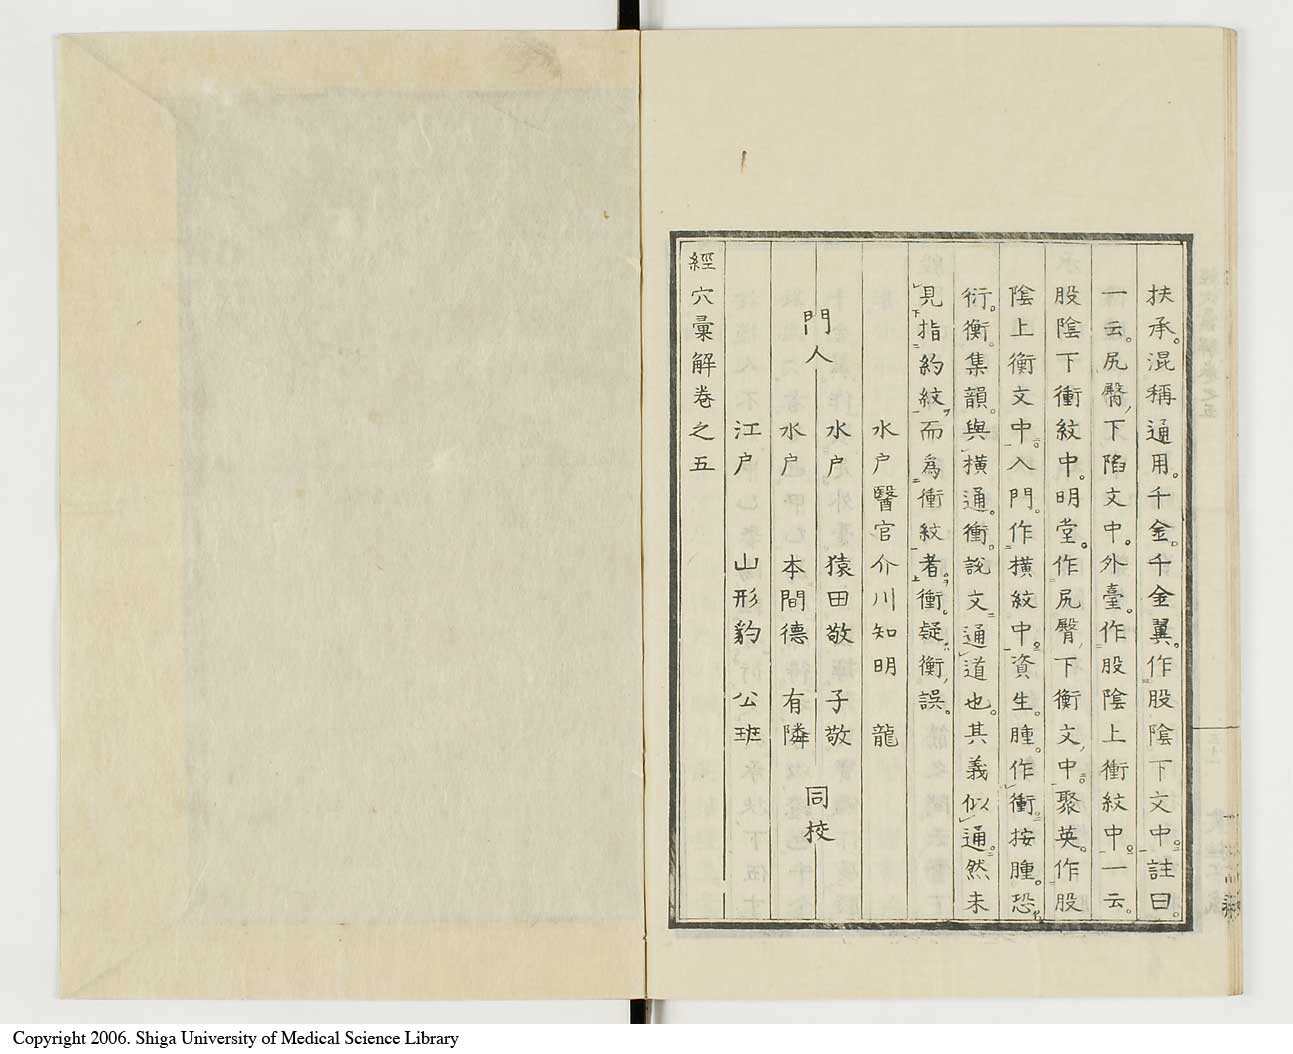 扶承。混稱通用。千金。千金翼。作股陰下文中。註曰。
一云。尻臀、下陷文中。外臺。作股陰上衝紋中。一云。
股陰下衝紋中。明堂。作尻臀、下衡文、中。聚英。作股
陰上衡文中。入門。作橫紋中。資生。腫。作衝。按腫。恐
衍。衡。集韻。與橫通。衝。說文。通道也。其義似通。然未
見指約紋而爲衝紋者。衝。疑衡、誤。
水户醫官介川知明 龍
門人
水户 猿田敬 子敬
水户 本間德 有隣
同校
江户 山形豹 公班
經穴彙解卷之五
Copyright 2006. Shiga University of Medical Science Library